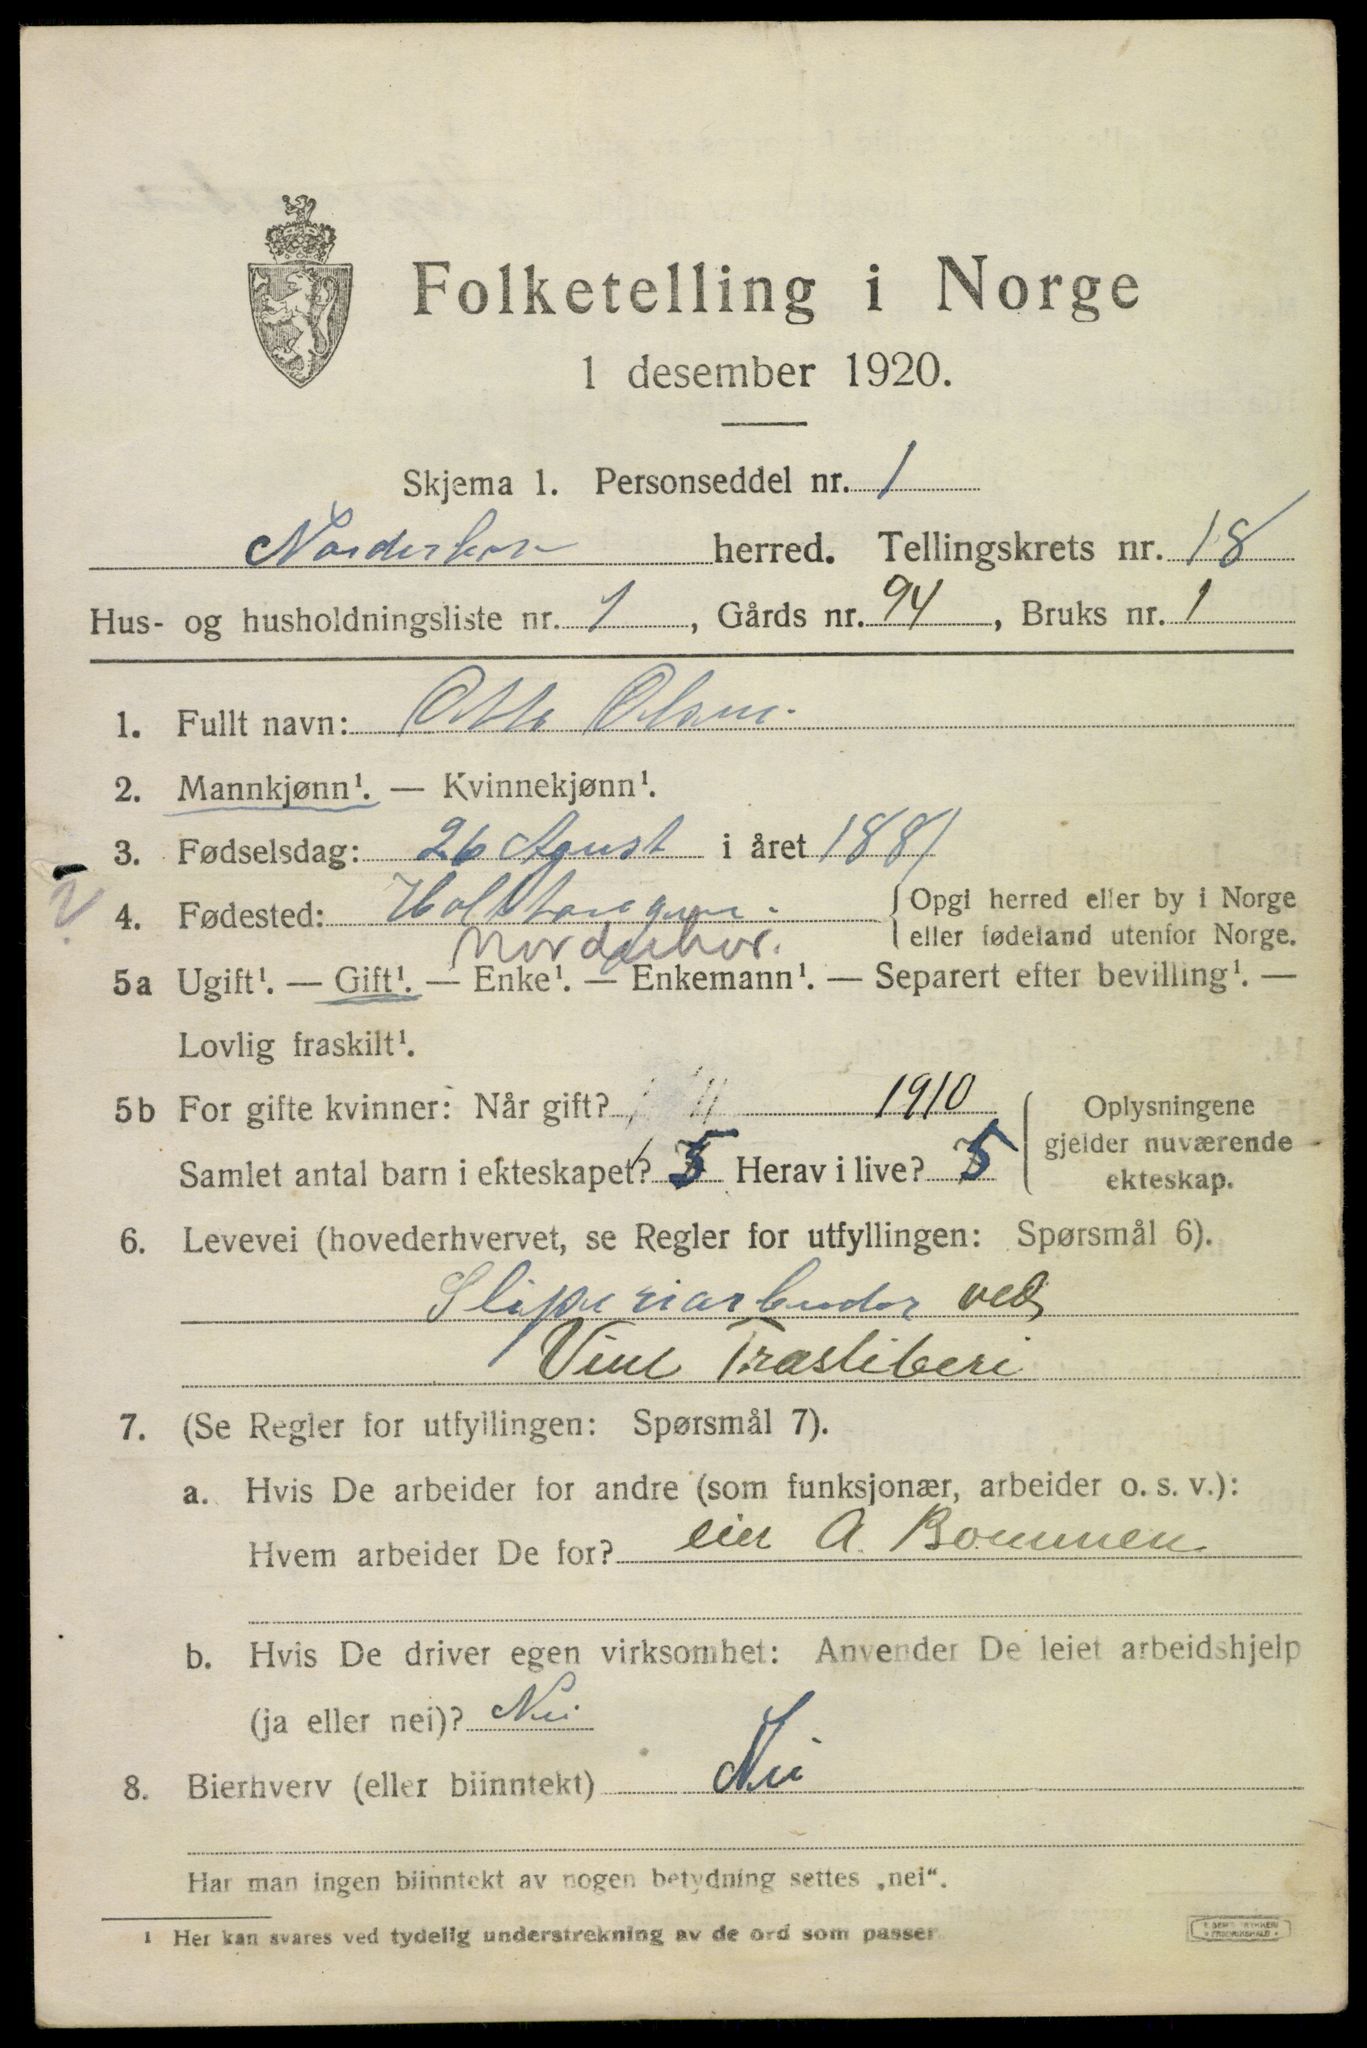 Folketelling i Norge
1 desember 1920.
Skjema 1. Personseddel nr. 1
Norderhov herred. Tellingskrets nr. 18
Hus- og husholdningsliste nr. 1, Gårds nr. 94, Bruks nr. 1
1. Fullt navn: Otto Olsen.
2. Mannkjønn¹. — Kvinnekjønn¹.
3. Fødselsdag: 26 Agust i året 1881
4. Fødested: { Opgi herred eller by i Norge
eller fødeland utenfor Norge.
Norderhov.
5a Ugift¹. — Gift¹. — Enke¹. — Enkemann¹. — Separert efter bevilling¹. —
Lovlig fraskilt¹.
5b For gifte kvinner: Når gift? 1910
Samlet antal barn i ekteskapet? 5 Herav i live? 5
{ Oplysningene
gjelder nuværende
ekteskap.
6. Levevei (hovederhvervet, se Regler for utfyllingen: Spørsmål 6).
Sliperiarbeider ved
Viul Træsliberi
7. (Se Regler for utfyllingen: Spørsmål 7).
a. Hvis De arbeider for andre (som funksjonær, arbeider o. s. v.):
Hvem arbeider De for? eier A. Bommen
b. Hvis De driver egen virksomhet: Anvender De leiet arbeidshjelp
(ja eller nei)? Nei
8. Bierhverv (eller biinntekt) Nei
Har man ingen biinntekt av nogen betydning settes „nei“.
¹ Her kan svares ved tydelig understrekning av de ord som passer